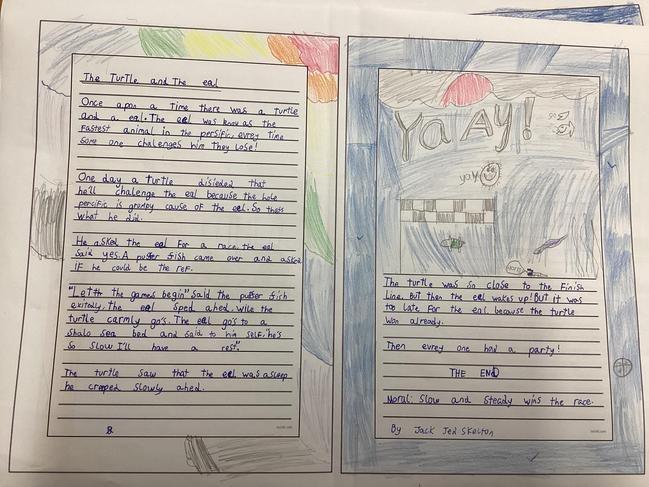 The Turtle and The eal
Once apon a Time there was a turtle
and a eal. The eal was know as the
Fastest animal in the persific, evrey time
some one challenges him they lose!
One day a turtle disieded that
he'll chalenge the eal because the hole
percific is grumpy cause of the eal. So thats
what he did.
He asked the eal for a race. the eal
said yes. A puffer fish came over and asked
if he could be the ref.
"Letth the games begin" said the puffer fish
exitedly. the eal sped ahed. Wile the
turtle carmly go's. The eal go's to a
shalo sea bed and said to him self, "he's
so slow I'll have a rest".
The turtle saw that the eal was asleep
he creeped slowly ahed.
B
YaAy!
go
yay
The turtle was so close to the Finish
Line. But then the eal wakes up! But it was
too late for the eal because the turtle
won already.
Then evrey one had a party!
THE END
Moral: Slow and Steady wins the race.
By Jack Jed Skelton